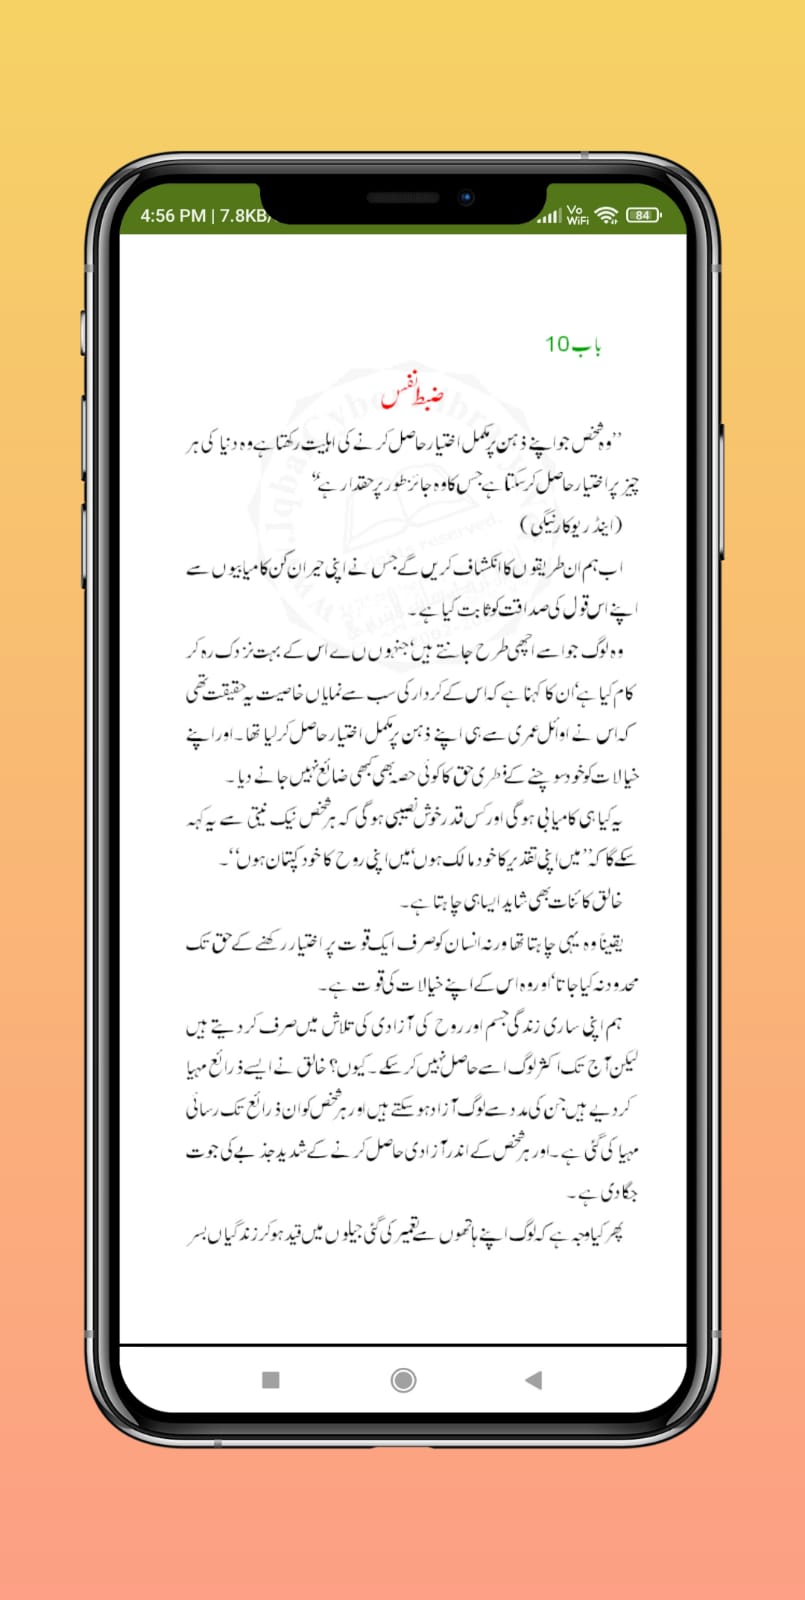 4:56 PM | 7.8KB/
Vo WiFi 84
باب 10
ضبط نفس
’’وہ شخص جو اپنے ذہن پر مکمل اختیار حاصل کرنے کی اہلیت رکھتا ہے وہ دنیا کی ہر
چیز پر اختیار حاصل کر سکتا ہے جس کا وہ جائز طور پر حقدار ہے‘‘
(اینڈریو کارنیگی)
اب ہم ان طریقوں کا انکشاف کریں گے جس نے اپنی حیران کن کامیابیوں سے
اپنے اس قول کی صداقت کو ثابت کیا ہے۔
وہ لوگ جو اسے اچھی طرح جانتے ہیں‘ جنہوں ںے اس کے بہت نزدک رہ کر
کام کیا ہے‘ ان کا کہنا ہے کہ اس کے کردار کی سب سے نمایاں خاصیت یہ حقیقت تھی
کہ اس نے اوائل عمری سے ہی اپنے ذہن پر مکمل اختیار حاصل کر لیا تھا۔ اور اپنے
خیالات کو خود سوچنے کے فطری حق کا کوئی حصہ بھی کبھی ضائع نہیں جانے دیا۔
یہ کیا ہی کامیابی ہو گی اور کس قدر خوش نصیبی ہو گی کہ ہر شخص نیک نیتی سے یہ کہہ
سکے گا کہ ’’میں اپنی تقدیر کا خود مالک ہوں‘ میں اپنی روح کا خود کپتان ہوں‘‘۔
خالق کائنات بھی شاید ایسا ہی چاہتا ہے۔
یقیناً وہ یہی چاہتا تھا ورنہ انسان کو صرف ایک قوت پر اختیار رکھنے کے حق تک
محدود نہ کیا جاتا‘ اور وہ اس کے اپنے خیالات کی قوت ہے۔
ہم اپنی ساری زندگی جسم اور روح کی آزادی کی تلاش میں صرف کر دیتے ہیں
لیکن آج تک اکثر لوگ اسے حاصل نہیں کر سکے۔ کیوں؟ خالق نے ایسے ذرائع مہیا
کر دیے ہیں جن کی مدد سے لوگ آزاد ہو سکتے ہیں اور ہر شخص کو ان ذرائع تک رسائی
مہیا کی گئی ہے۔ اور ہر شخص کے اندر آزادی حاصل کرنے کے شدید جذبے کی جوت
جگا دی ہے۔
پھر کیا وجہ ہے کہ لوگ اپنے ہاتھوں سے تعمیر کی گئی جیلوں میں قید ہو کر زندگیاں بسر